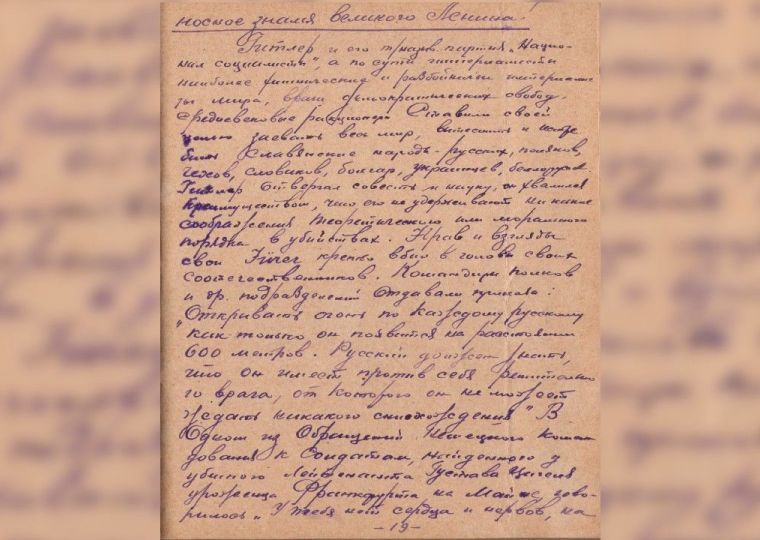 носное знамя великого Ленина!
Гитлер и его т. назыв. партия „Нацио-
нал социалисты", а по сути империалисты
наиболее хищнические и разбойничьи империалис-
ты мира, враги демократических свобод,
средневековые реакционеры ставили своей
целью завоевать весь мир, вытеснить и истре-
бить Славянские народы - русских, поляков,
чехов, словаков, болгар, украинцев, белоруссов.
Гитлер отвергал совесть и науку, он хвалился
преимуществом, что его не удерживают ни какие
соображения теоретического или морального
порядка в убийствах. Нрав и взгляды
свои Fürer крепко вбил в головы своих
соотечественников. Командиры полков
и др. подразделений отдавали приказы:
„Открывать огонь по каждому русскому
как только он появится на расстоянии
600 метров. Русский должен знать,
что он имеет против себя решительно-
го врага, от которого он не может
ждать никакого снисхождения" В
одном из обращений Немецкого коман-
дования к солдатам, найденного у
убитого Лейтенанта Густава Цигеля
урожденца Франкфурта на Майне, гово-
рилось „У тебя нет сердца и нервов, на
-19-